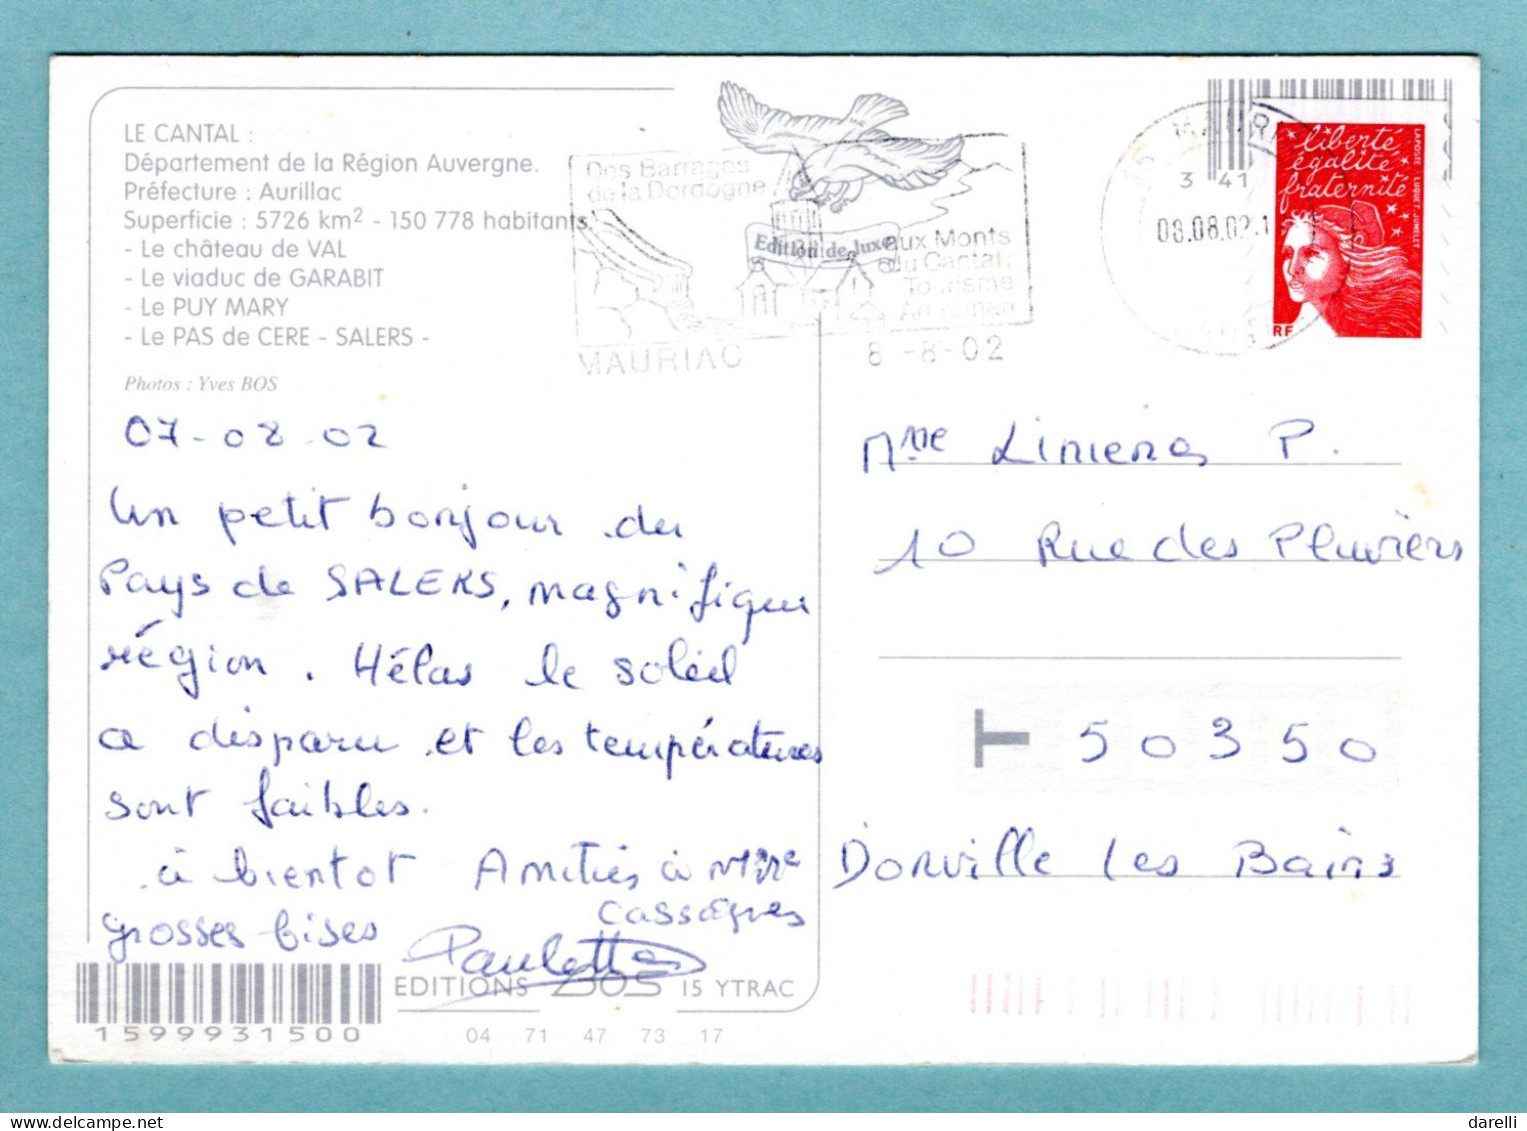 LE CANTAL :
Département de la Région Auvergne.
Préfecture : Aurillac
Superficie : 5726 km2 - 150 778 habitants.
- Le château de VAL
- Le viaduc de GARABIT
- Le PUY MARY
- Le PAS de CERE - SALERS -
Photos : Yves BOS
07-08-02
Un petit bonjour du
Pays de SALERS, magnifique
région. Hélas le soleil
a disparu et les températures
sont faibles.
à bientot Amitiés à Mme
Cassagnes
grosses bises
Paulette
EDITIONS BOS 15 YTRAC
04 71 47 73 17
1599931500
Des Barrages
de la Dordogne
Edition de luxe
aux Monts
du Cantal :
Tourisme
Art roman
MAURIAC
8-8-02
15 MAURIAC
3 41
08.08.02
liberté
égalité
fraternité
LAPOSTE LUQUET JUMELET
RF
Mme Linieres P.
10 Rue des Pluviers
T 50350
Donville les Bains
darelli